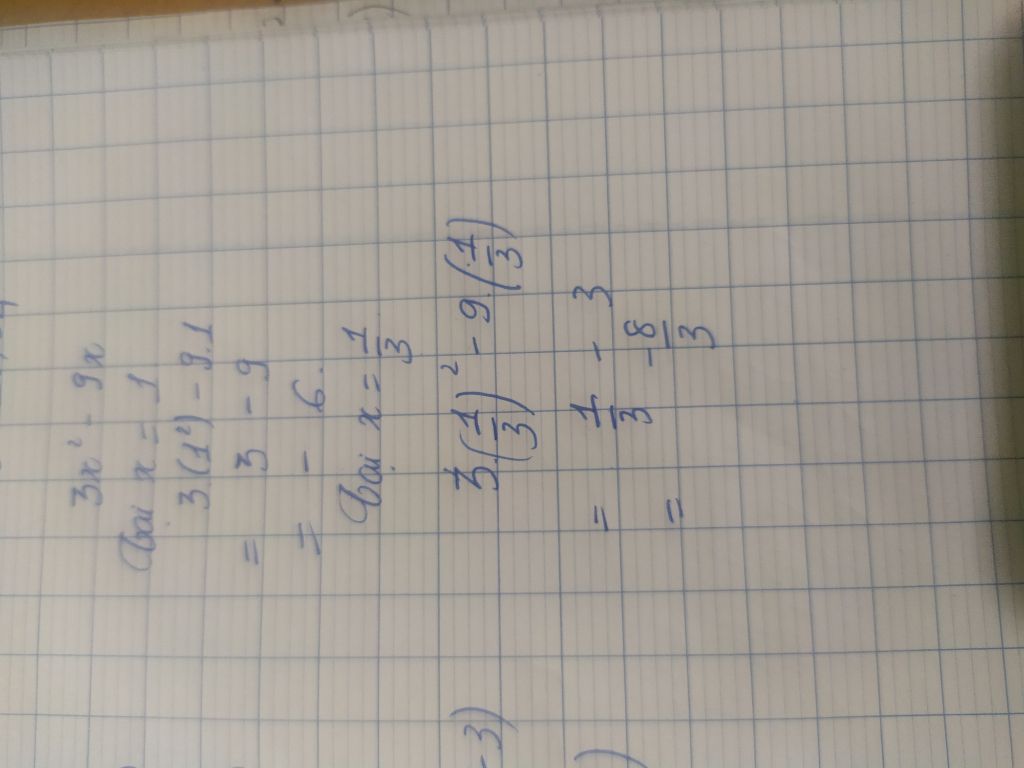 3x² - 9x
Tại x = 1
3(1²) - 9.1
= 3 - 9
= - 6.
Tại x = 1/3
3.(1/3)² - 9.(1/3)
= 1/3 - 3
= -8/3
- 3)
)